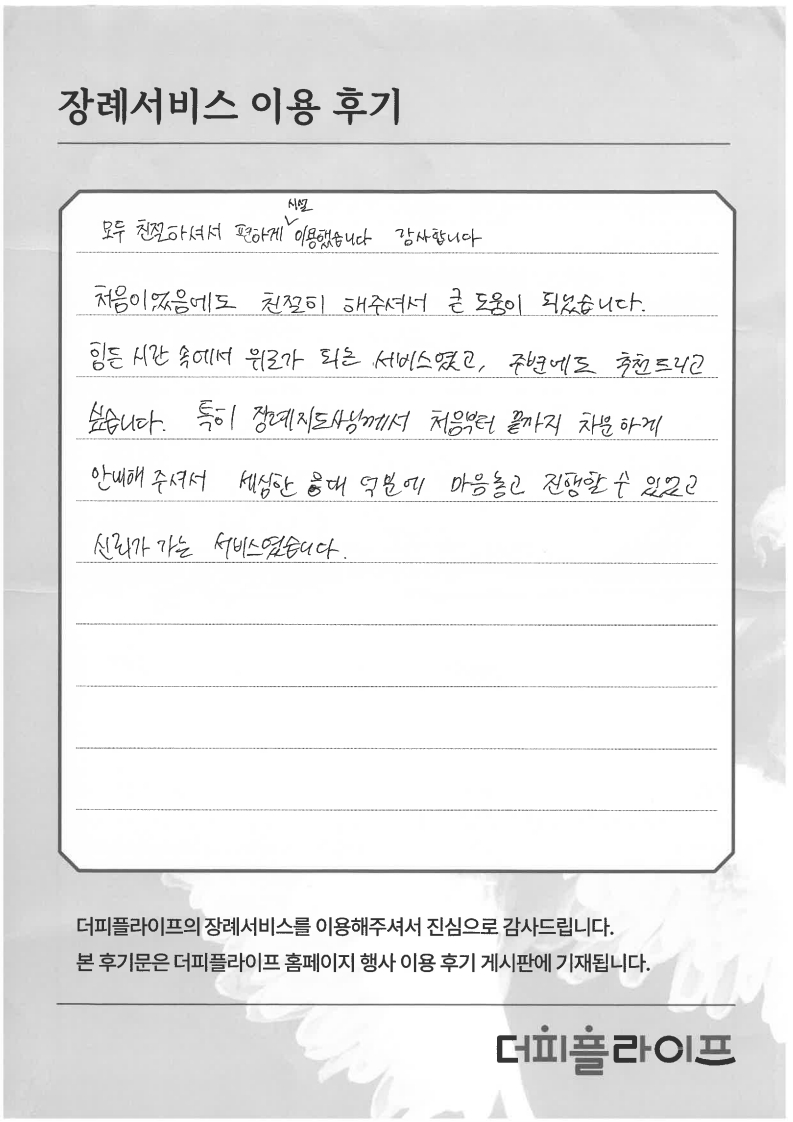 장례서비스 이용 후기
모두 친절하셔서 편하게 시설 이용했습니다 감사합니다
처음이었음에도 친절히 해주셔서 큰 도움이 되었습니다.
힘든 시간 속에서 위로가 되는 서비스였고, 주변에도 추천드리고
싶습니다. 특히 장례지도사님께서 처음부터 끝까지 차분하게
안내해 주셔서 세심한 응대 덕분에 마음놓고 진행할 수 있었고
신뢰가 가는 서비스였습니다.
더피플라이프의 장례서비스를 이용해주셔서 진심으로 감사드립니다.
본 후기문은 더피플라이프 홈페이지 행사 이용 후기 게시판에 기재됩니다.
더피플라이프